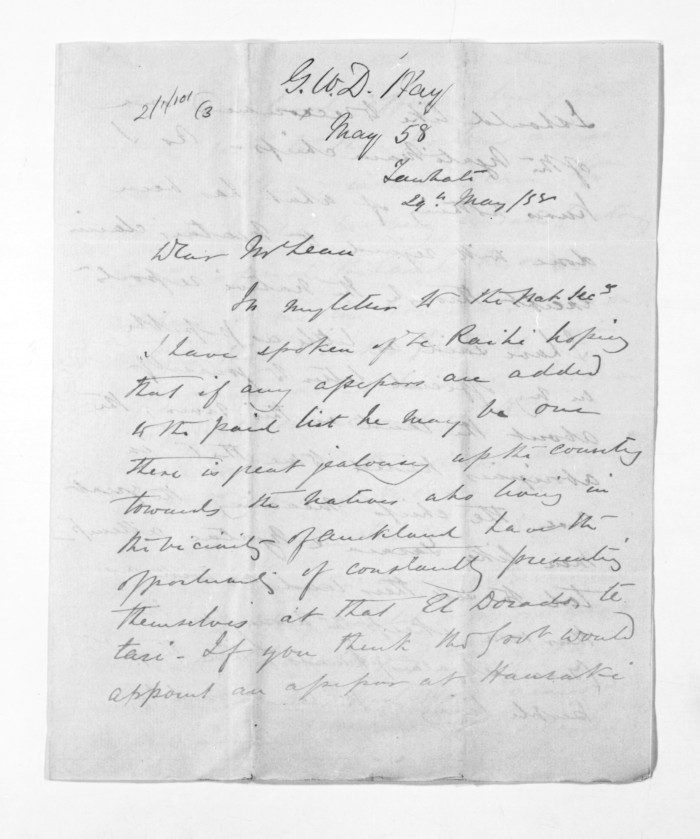 G.W.D. Hay
May 58
29th May/58
Dear McLean
In my letter to the Nat. Secy
I have spoken of Te Raihi hoping
that if any assessors are added
to the paid list he may be one
there is great jealousy up the country
towards the Natives who living in
the vicinity of Auckland have the
opportunity of constantly presenting
themselves at that El Dorado te
tari - If you think the Govt would
appoint an assessor at Hauraki